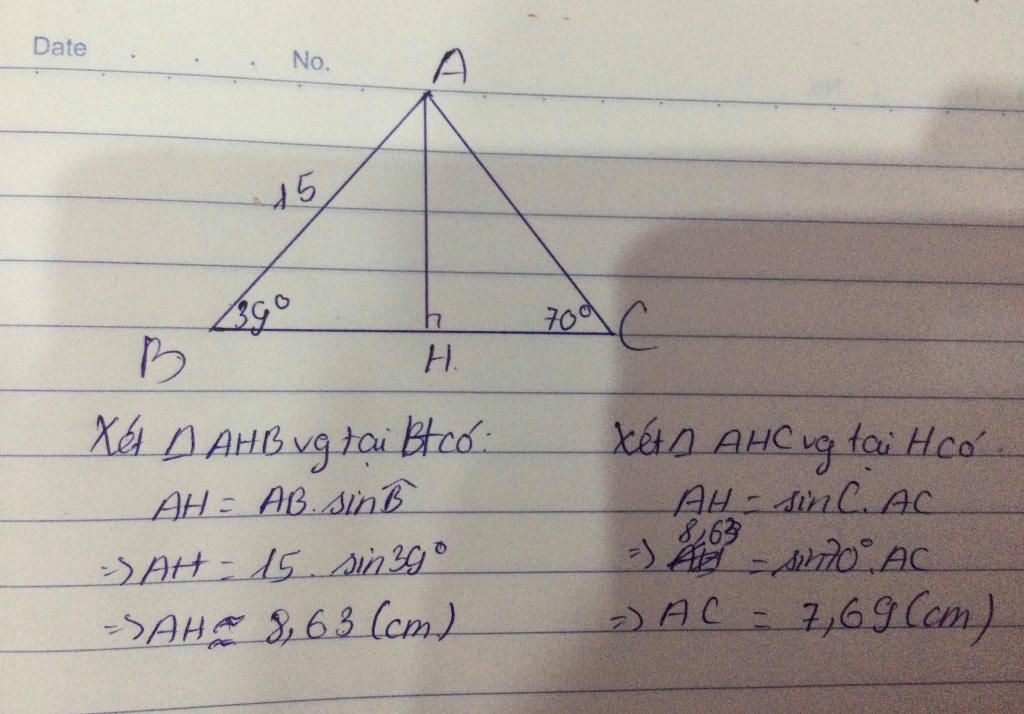 Date No.
A
15
39° 70°
B H. C
Xét △ AHB vg tại H có:
AH = AB. sin B̂
=> AH = 15. sin 39°
=> AH ≈ 8,63 (cm)
Xét △ AHC vg tại H có
AH = sin Ĉ. AC
=> 8,63 = sin 70°. AC
=> AC = 7,69 (cm)